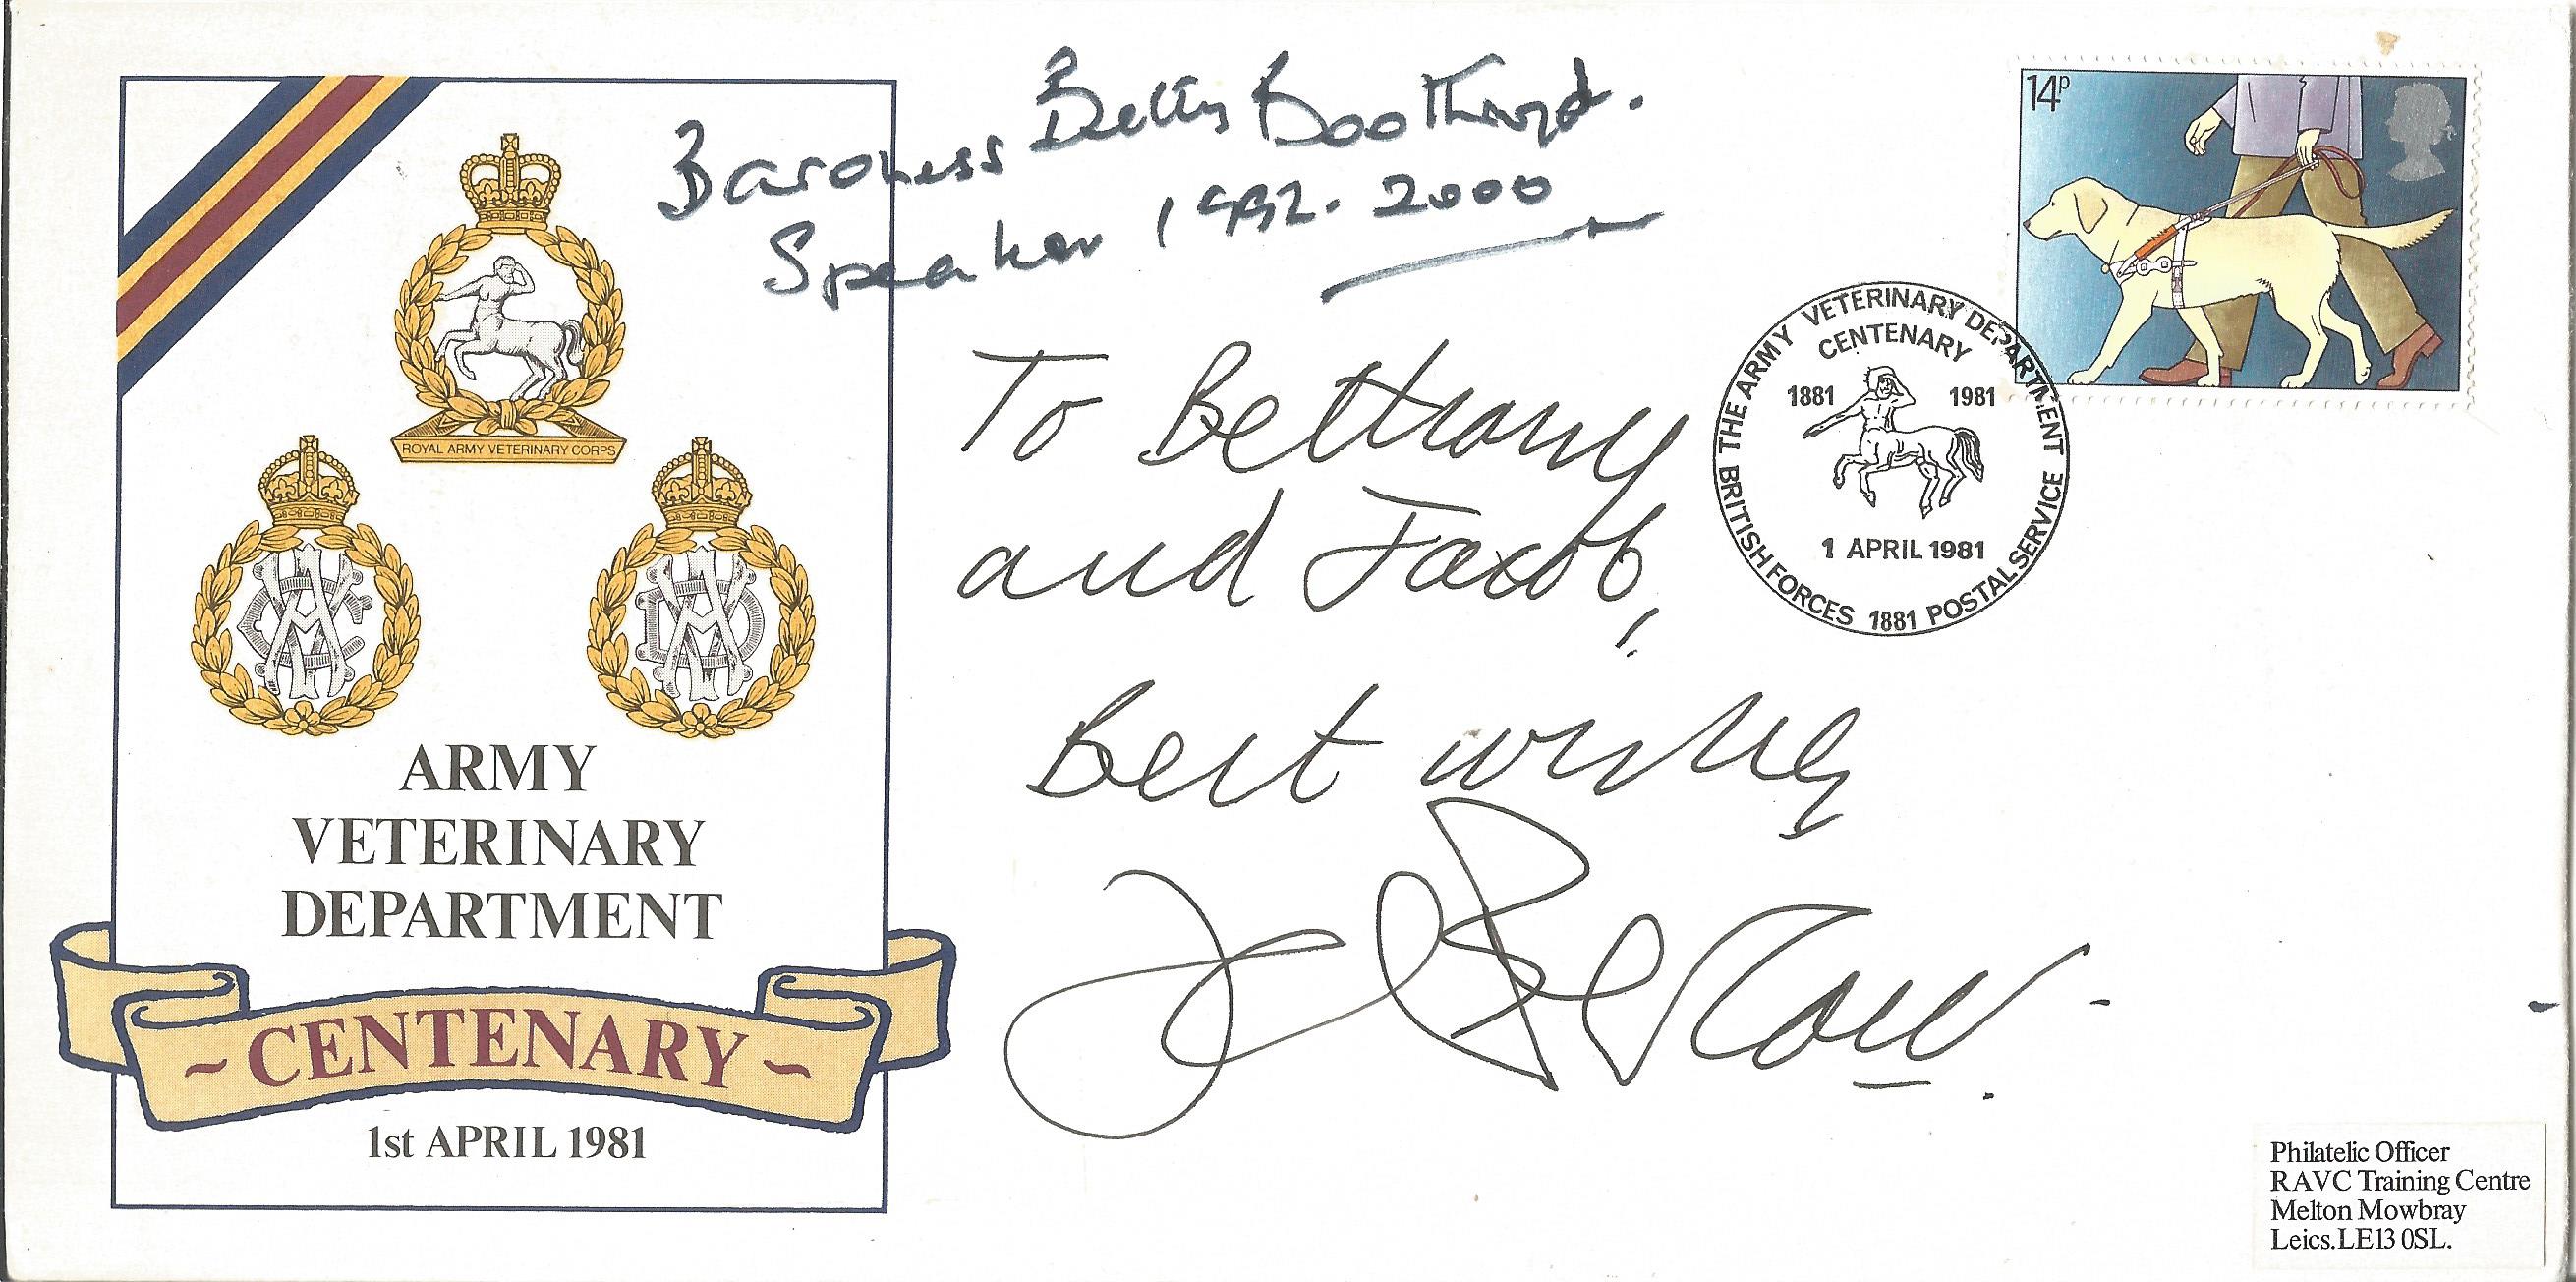 Baroness Betty Boothroyd.
Speaker 1992-2000
14P
THE ARMY VETERINARY DEPARTMENT
CENTENARY
1881 1981
1 APRIL 1981
BRITISH FORCES 1881 POSTAL SERVICE
ROYAL ARMY VETERINARY CORPS
To Bethany
and Jacob,
Best wishes
ARMY
VETERINARY
DEPARTMENT
~ CENTENARY ~
1st APRIL 1981
Philatelic Officer
RAVC Training Centre
Melton Mowbray
Leics. LE13 0SL.